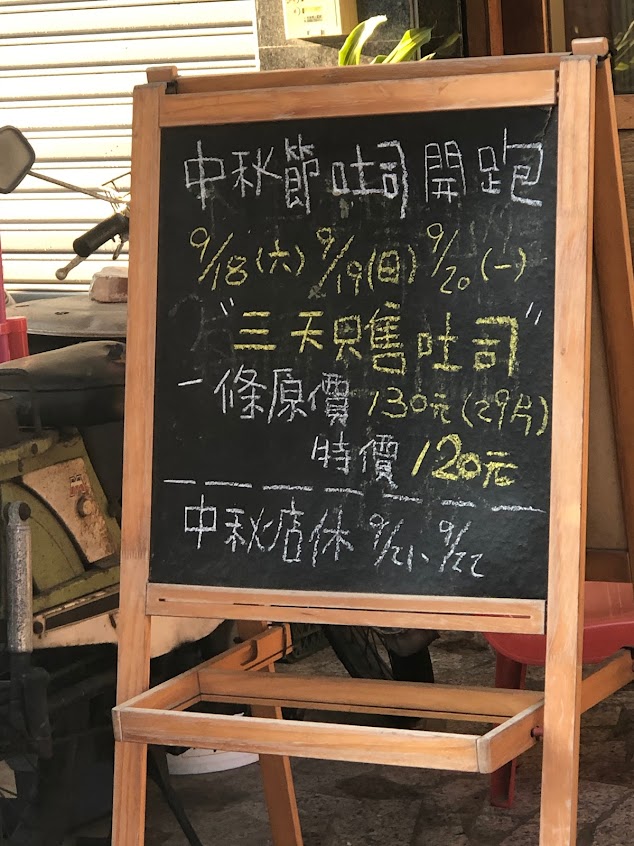 中秋節吐司開跑
9/18(六) 9/19(日) 9/20(一)
"三天只售吐司"
一條原價130元(29片)
特價120元
中秋店休 9/21、9/22